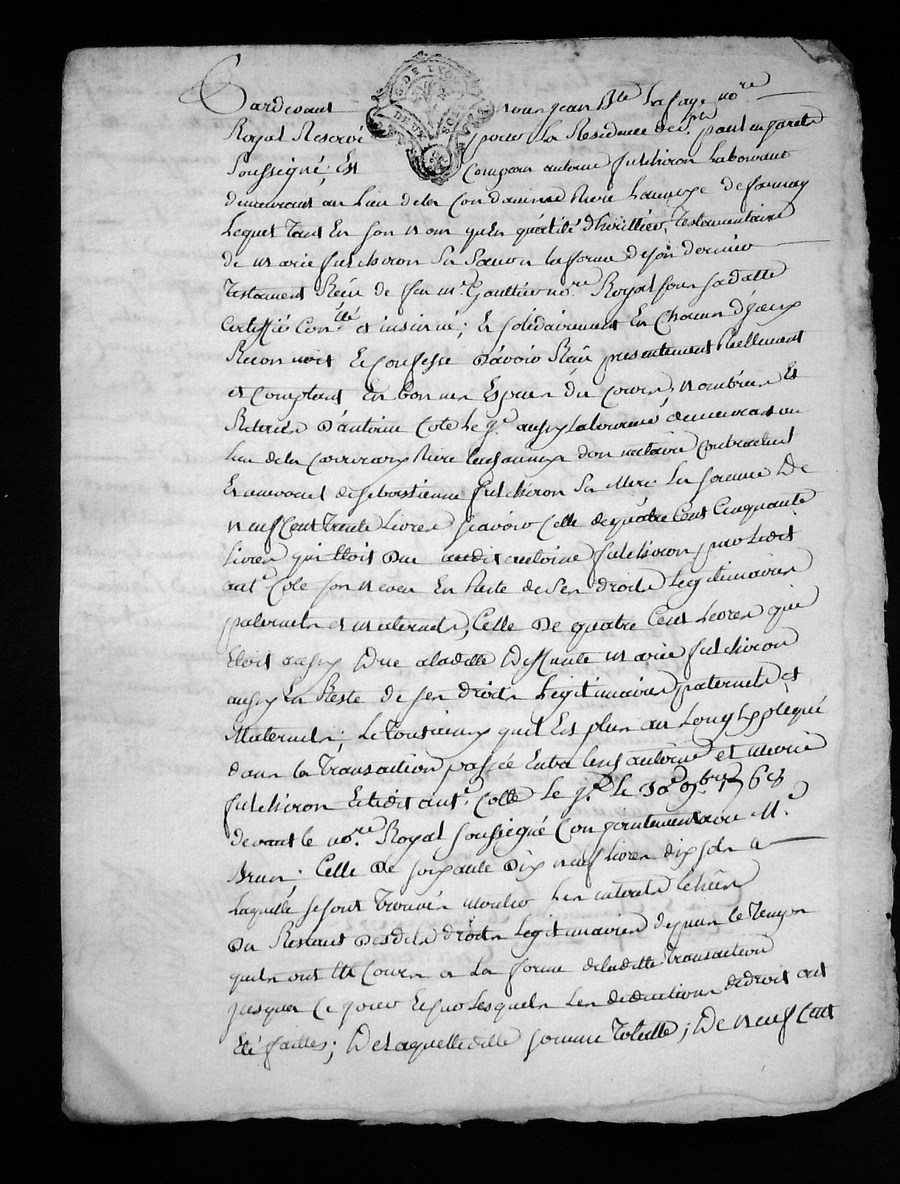 G. DE LYON
DEUX SOLS
Pardevant nous jean Bte Lafaye nore
Royal Reservé pour la Residence de St paul en jarets
Soussigné; Est Comparu antoine fulchiron Laboureur
demeurant au Lieu de la Condamine Rière Lavarize de farnay
Lequel tant En son nom qu'En qualité d'heritiéer, Testamentaire
de marie fulchiron Sa Sœur La forme de son dernier
Testament Reçu de feu mr. Gaultier nore. Royal sous sa datte
Certiffié Conllé et insinué; En solidairement En Chacun d'yceux
Reconnoit Et Confesse d'avoir Reçu presentement Réellement
et Comptant En bonnes Espèces du Cours, nombrées Et
Retirées d'antoine Cote le jne. aussy Laboureur demeurant au
lieu de la Rière don metaire Contractant
Et au nom de Sebastienne fulchiron Sa Mere La somme De
neuf Cent Trente Livres Sçavoir Celle de quatre Cent Cinquante
Livres qui Etoit Due audit antoine fulchiron par Ledit
ant. Cote son neveu En Reste de Ses droits Legitimaires
paternels et maternels, Celle De quatre Cent Livres qui
Etoit aussy Due a ladite Deffunte marie fulchiron
aussy En Reste de ses droits Legitimaires paternels et
Maternels; Le Tout ainsy qu'il Est plus au Long Expliqué
dans la Transaction passée Entre lesd antoine et marie
fulchiron Et ledit ant. Cotte Le jne. le 30 9bre 1768
devant le nore. Royal Soussigné Conjointement avec Mr.
Brun; Celle De soixante Dix neuf Livres dix sols a
Laquelle se sont Trouvés monter Les interets échus
Du Restant Desdits droits Legitimaires depuis le Temps
qu'ils ont Eté Cours a La forme de ladite Transaction
jusques Ce jour Et sur Lesquels Les deductions de droit ont
Eté faittes; De laquelle dite somme Totalle; De neuf Cent